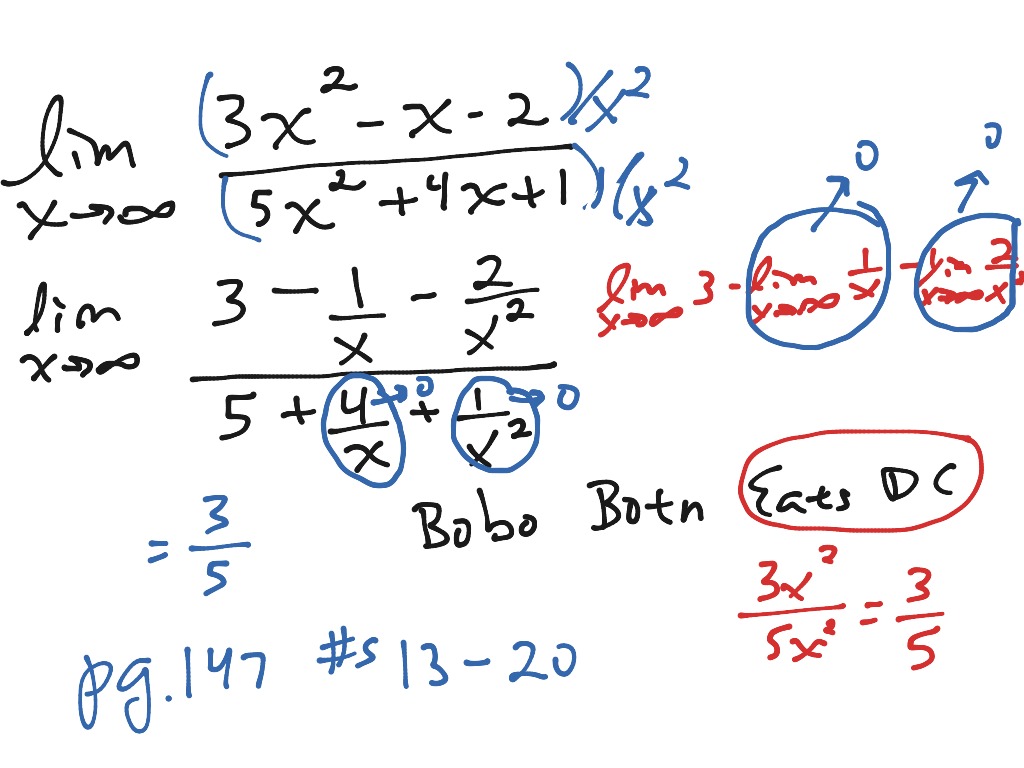 lim x→∞ (3x² - x - 2)/x²
(5x² + 4x + 1)/x²
lim x→∞ 3 - 1/x - 2/x²
5 + 4/x → 0 + 1/x² → 0
lim x→∞ 3 - lim x→∞ 1/x → 0 - lim x→∞ 2/x → 0
= 3/5
Bobo Botn Eats DC
3x²/5x² = 3/5
pg. 147 #s 13 - 20